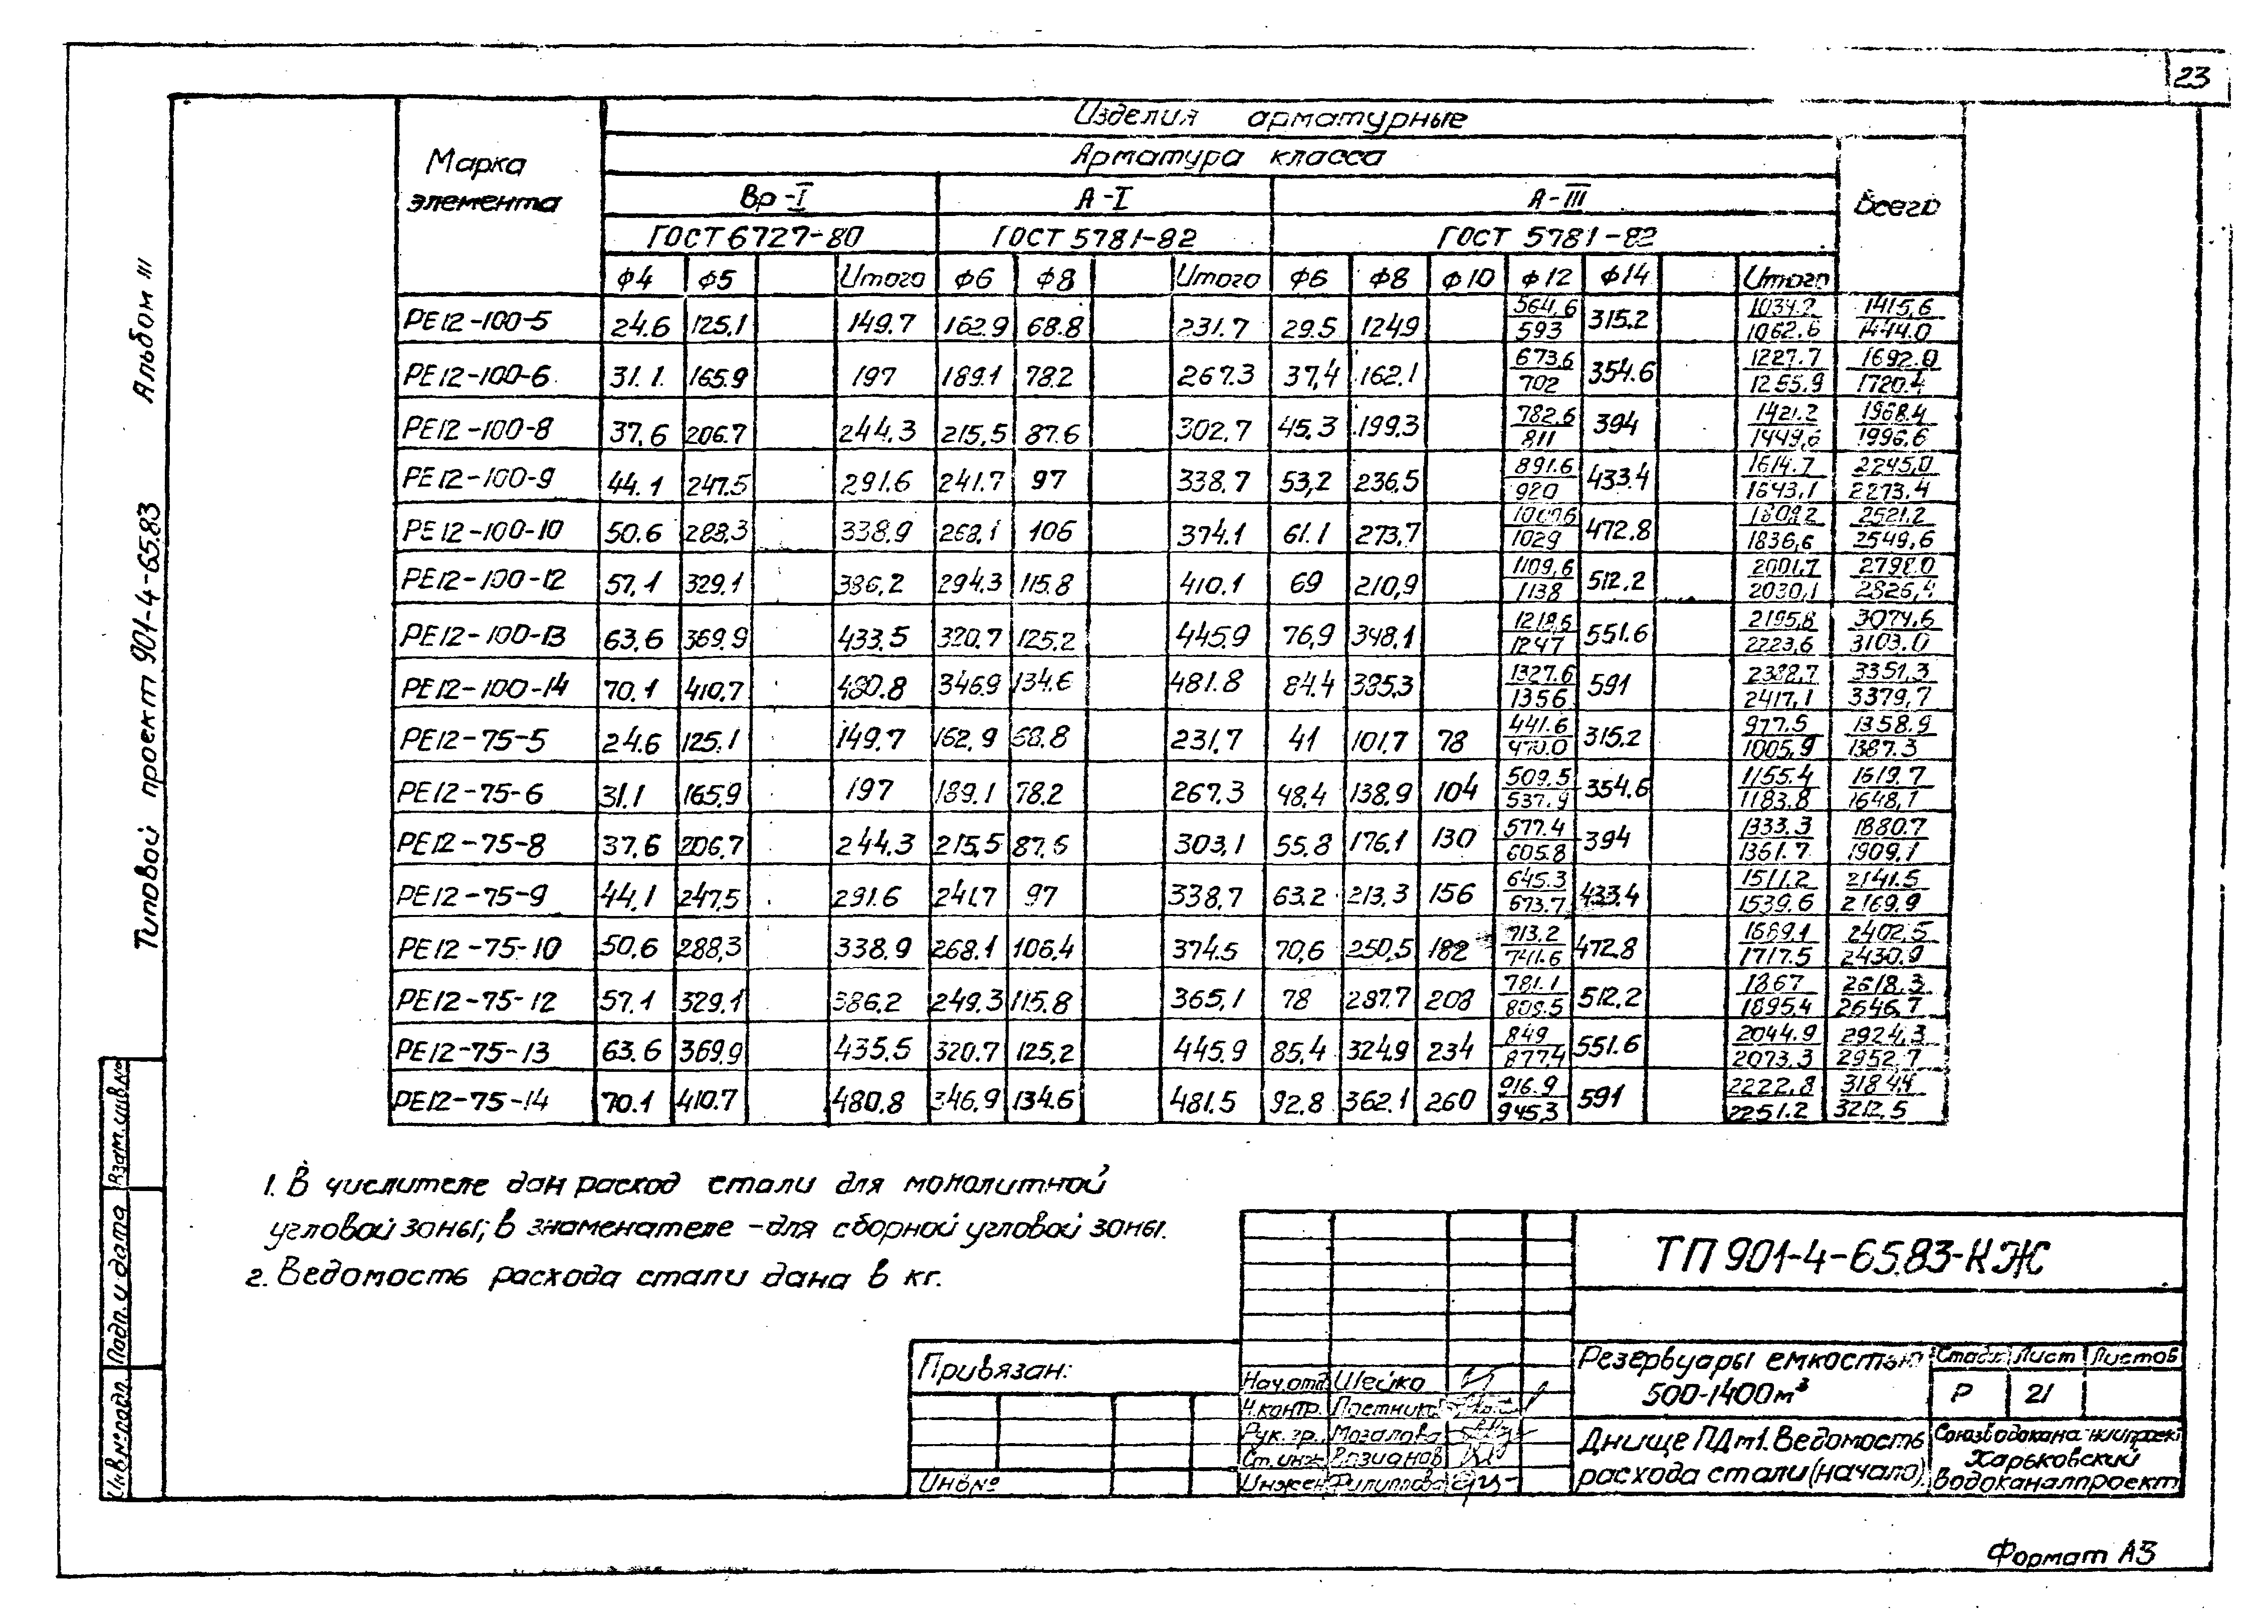 23
Альбом III
Типовой проект 901-4-65.83
Изделия арматурные
Марка элемента
Арматура класса
Всего
Вр-I А-I А-III
ГОСТ 6727-80 ГОСТ 5781-82 ГОСТ 5781-82
ф4 ф5 Итого ф6 ф8 Итого ф6 ф8 ф10 ф12 ф14 Итого
РЕ12-100-5 24.6 125.1 149.7 162.9 68.8 231.7 29.5 124.9 564.6/593 315.2 1034.2/1062.6 1415,6/1444.0
РЕ12-100-6 31.1 165.9 197 189.1 78.2 267.3 37,4 162.1 673.6/702 354.6 1227.7/1255.9 1692.0/1720.4
РЕ12-100-8 37,6 206.7 244.3 215,5 87.6 302,7 45.3 199.3 782.6/811 394 1421.2/1449,6 1968.4/1996.6
РЕ12-100-9 44.1 247.5 291.6 241.7 97 338.7 53,2 236,5 891.6/920 433.4 1614.7/1643,1 2245,0/2273.4
РЕ12-100-10 50.6 288.3 338.9 268.1 106 374.1 61.1 273,7 1000.6/1029 472.8 1808.2/1836,6 2521.2/2549,6
РЕ12-100-12 57,1 329.1 386,2 294.3 115.8 410.1 69 210,9 1109,6/1138 512.2 2001,7/2030,1 2798.0/2826,4
РЕ12-100-13 63.6 369.9 433.5 320.7 125.2 445.9 76,9 348.1 1218,6/1247 551.6 2195,8/2223,6 3074.6/3103.0
РЕ12-100-14 70.1 410.7 480.8 346.9 134.6 481.8 84.4 385,3 1327.6/1356 591 2388,7/2417,1 3351,3/3379,7
РЕ12-75-5 24.6 125.1 149.7 162.9 68.8 231.7 41 101.7 78 441.6/470.0 315.2 977.5/1005,9 1358.9/1387.3
РЕ12-75-6 31.1 165.9 197 189.1 78.2 267.3 48.4 138.9 104 509.5/537.9 354.6 1155.4/1183.8 1619.7/1648,1
РЕ12-75-8 37.6 206.7 244.3 215,5 87.6 303,1 55.8 176.1 130 577.4/605.8 394 1333.3/1361.7 1880.7/1909,1
РЕ12-75-9 44.1 247,5 291.6 241.7 97 338.7 63.2 213,3 156 645.3/673.7 433.4 1511.2/1539.6 2141.5/2169.9
РЕ12-75-10 50,6 288,3 338.9 268.1 106,4 374.5 70,6 250,5 182 713.2/741.6 472.8 1689.1/1717.5 2402,5/2430.9
РЕ12-75-12 57.1 329.1 386.2 249.3 115.8 365,1 78 287.7 208 781.1/809.5 512.2 1867/1895,4 2618.3/2646.7
РЕ12-75-13 63.6 369.9 435.5 320.7 125,2 445.9 85,4 324.9 234 849/877.4 551.6 2044.9/2073.3 2924,3/2952,7
РЕ12-75-14 70.1 410.7 480.8 346.9 134.6 481.5 92.8 362.1 260 916.9/945,3 591 2222.8/2251.2 3184.4/3212,5
1. В числителе дан расход стали для монолитной
угловой зоны; в знаменателе - для сборной угловой зоны.
2. Ведомость расхода стали дана в кг.
Инв.№подл. Подп. и дата Взам.инв.№
ТП 901-4-65.83-КЖ
Привязан:
Инв№
Нач.отд. Шейко
Н.контр.
Рук.гр. Мозалова
Ст.инж. Розианов
Инжен. Филиппова
Резервуары емкостью
500-1400м³
Стадия Лист Листов
Р 21
Днище ПДм1. Ведомость
расхода стали (начало).
Союзводоканалниипроект
Харьковский
Водоканалпроект
Формат А3